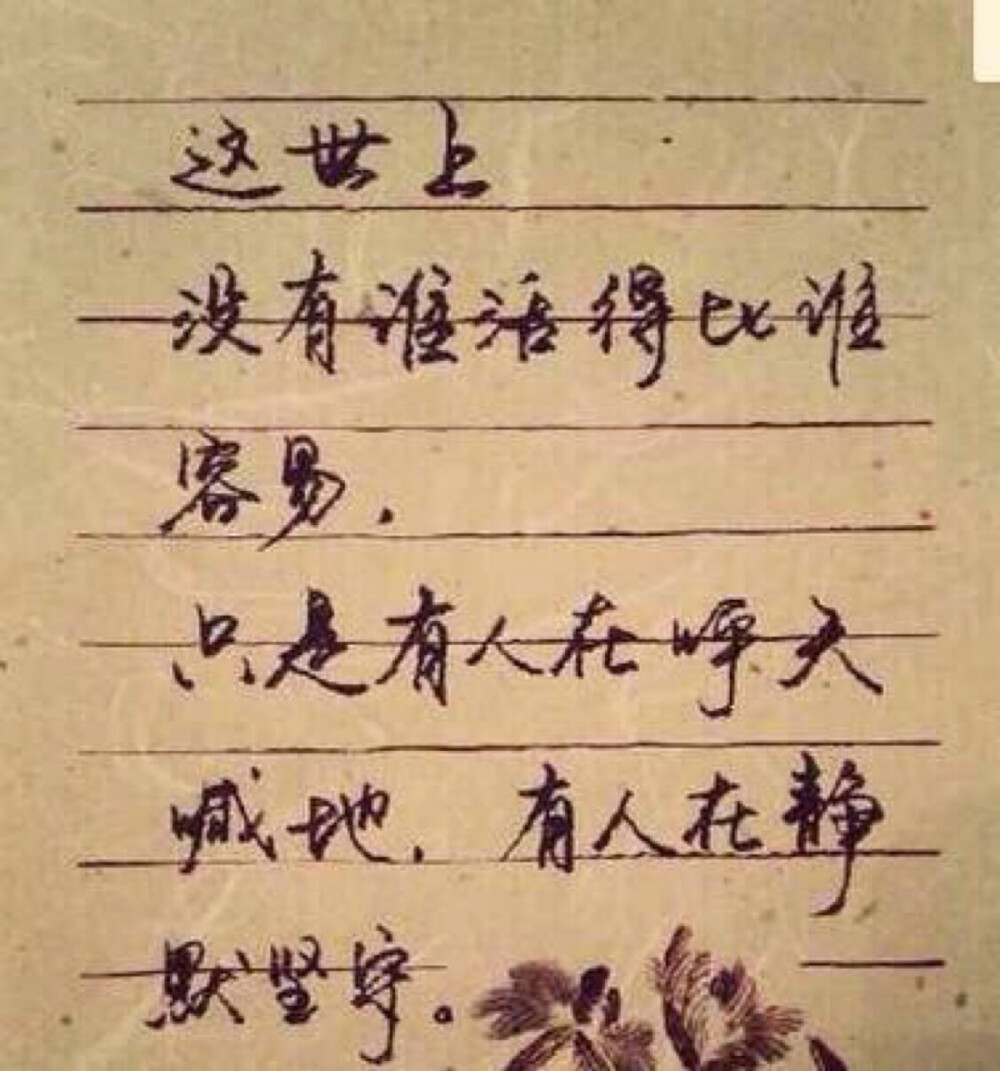 这世上
没有谁活得比谁
容易，
只是有人在呼天
喊地，有人在静
默坚守。